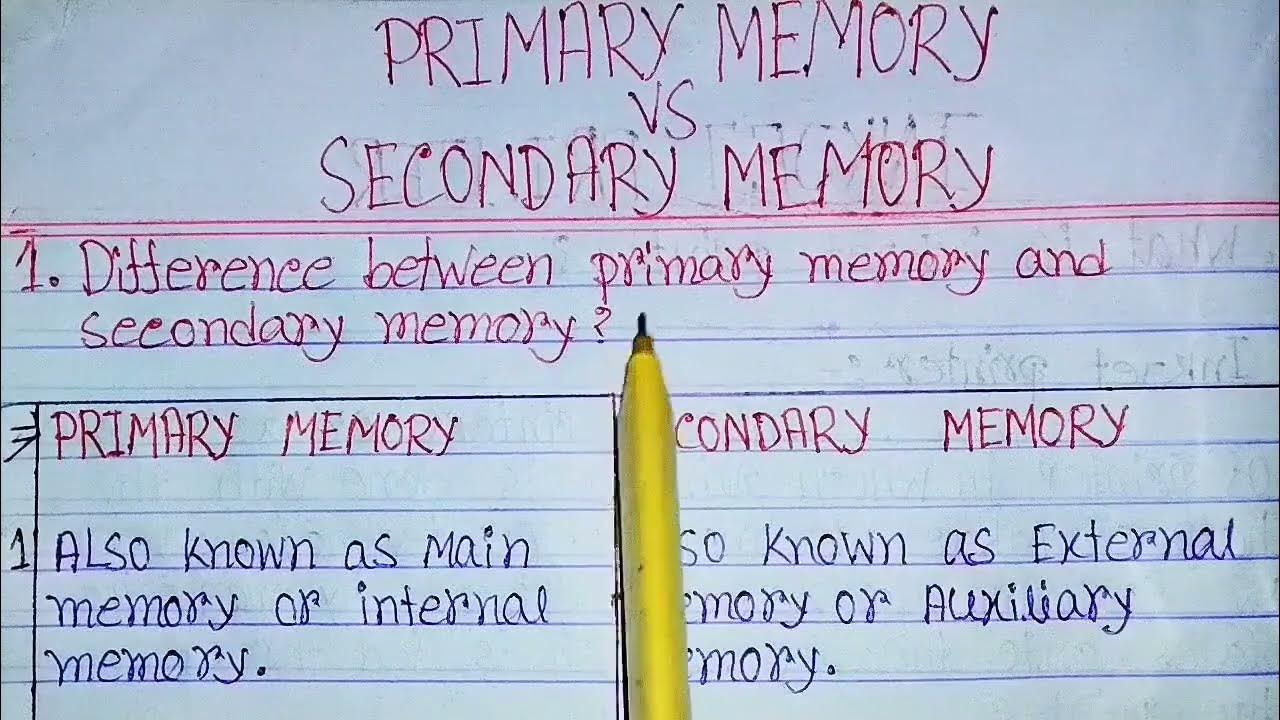 PRIMARY MEMORY
VS
SECONDARY MEMORY
1. Difference between primary memory and
secondary memory?
⇒ PRIMARY MEMORY CONDARY MEMORY
1 Also known as Main so known as External
memory or internal mory or Auxiliary
memory. mory.
Ink-net printer:-